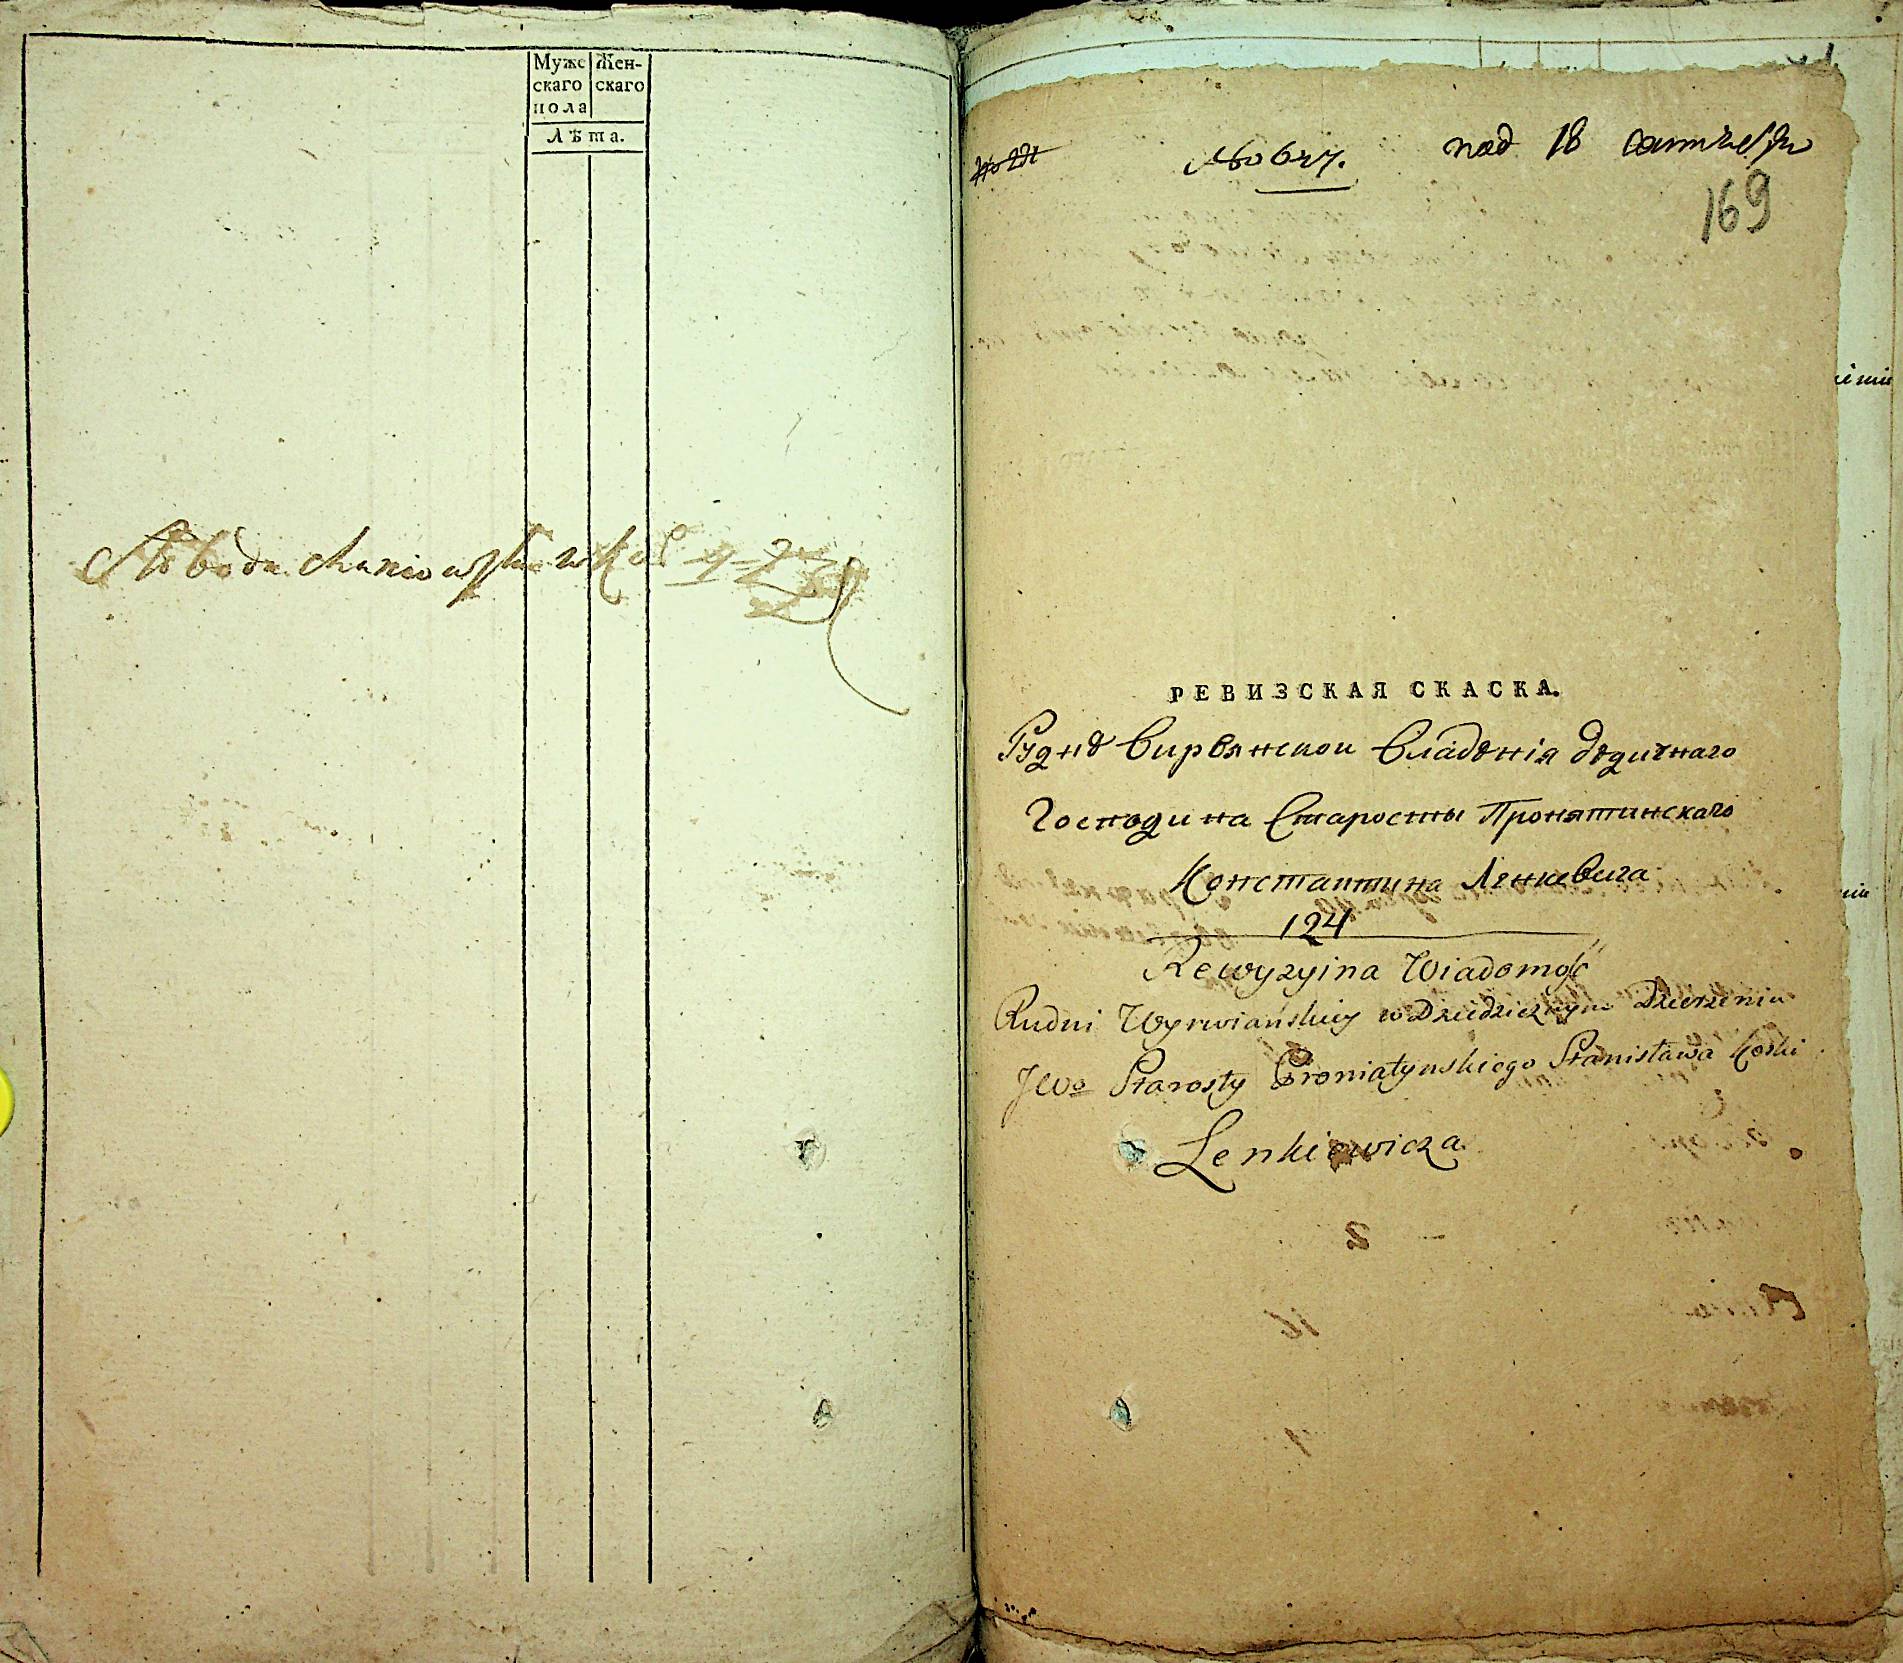 Муже Жен-
скаго скаго
пола
Лѣта.
No 647. под 18 сентебря
169
РЕВИЗСКАЯ СКАСКА.
Руднѣ Вирвянской владѣнія дѣдичнаго
Господина Старосты Пронятинскаго
Константина Лѣнкевича
124
Rewyzyina Wiadomość
Rudni Wyrwiańskiey w Dziedzicznym Dzierżeniu
JWo Starosty Proniatynskiego Stanisława Kostki
Lenkiewicza